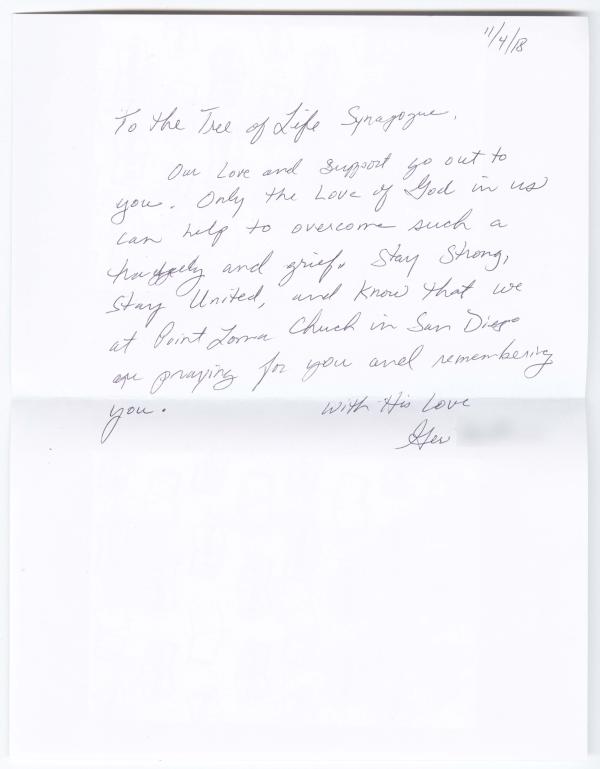 11/4/18
To the Tree of Life Synagogue,
Our Love and Support go out to
you. Only the Love of God in us
can help to overcome such a
and grief. Stay Strong,
Stay United, and Know that we
at Point Loma Chuch in San Diego
are praying for you and remembering
you.
With His Love